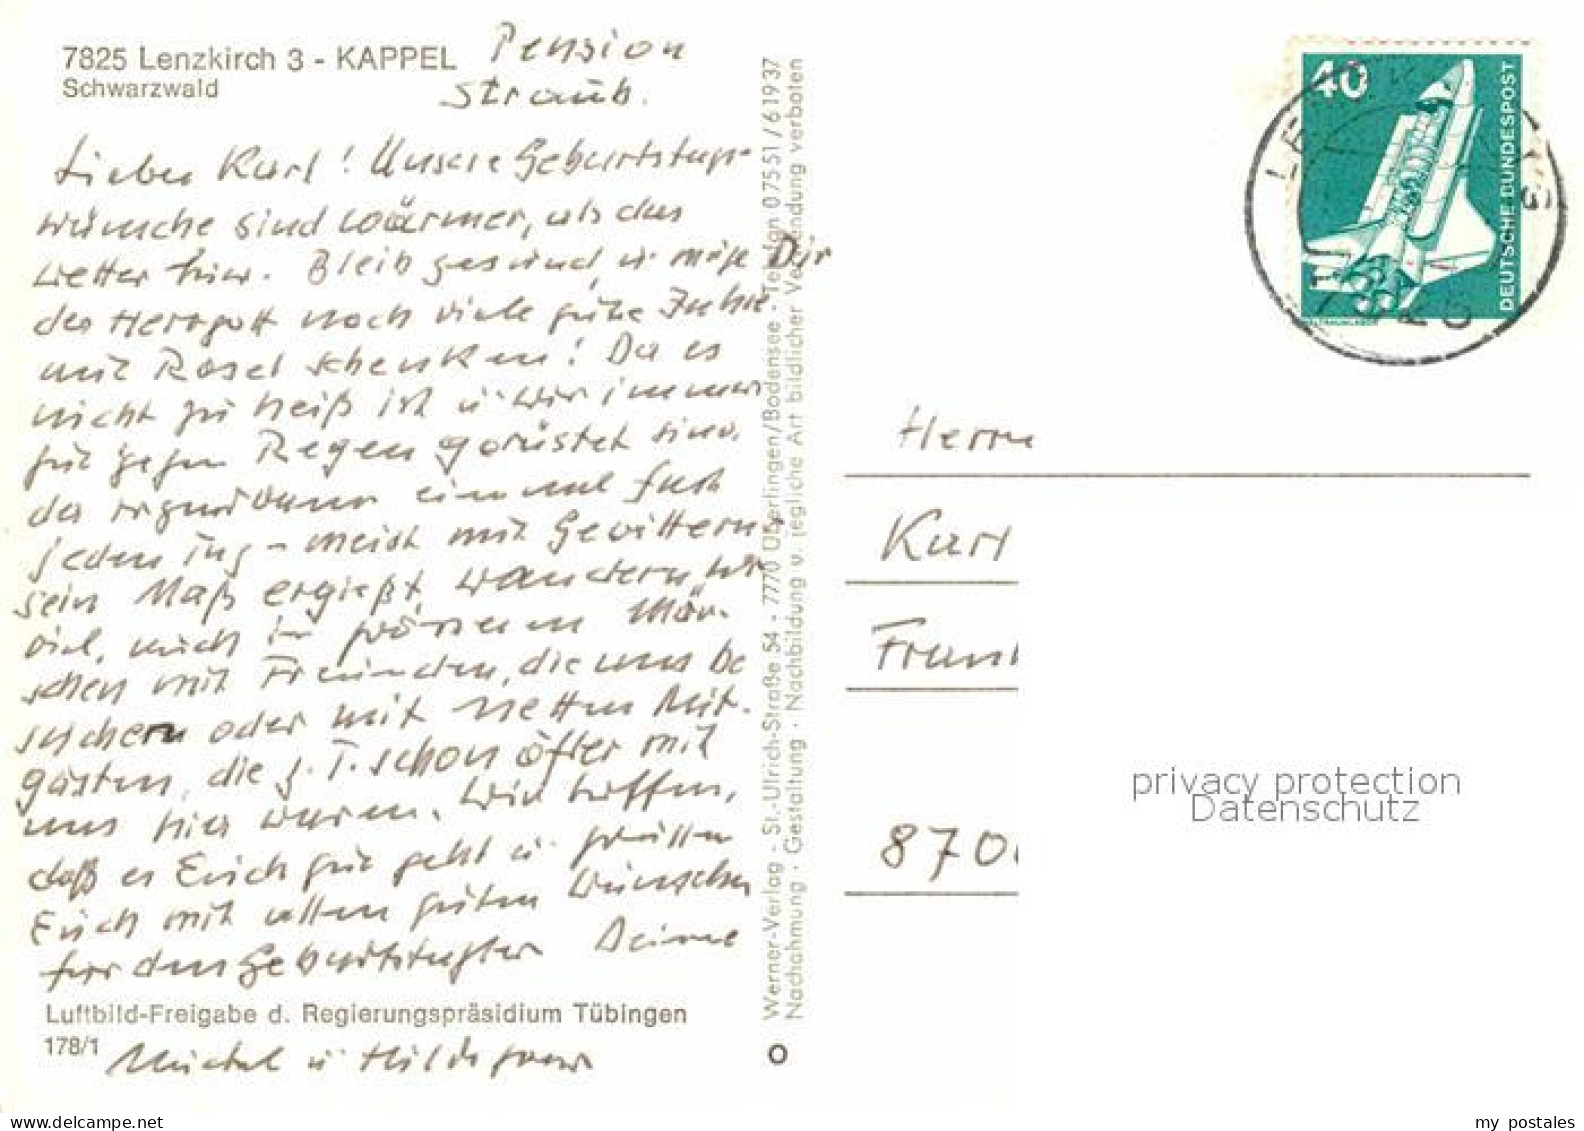 7825 Lenzkirch 3 - KAPPEL Pension
Schwarzwald Straub.
Lieber Karl! Unsere Geburtstags-
wünsche sind wärmer, als das
Wetter hier. Bleib gesund, u. möge Dir
der Herrgott noch viele gute Jahre
mit Rosel schenken! Da es
nicht zu heiß ist u. wir immer
gut gegen Regen gerüstet sind,
da irgendwann einmal fast
jeden Tag - meist mit Gewittern
sein Maß ergießt, wandern wir
viel, auch in grösseren Mär-
schen mit Freunden, die uns be
suchern oder mit netten Mit-
gästen, die z. T. schon öfter mit
uns hier waren. Wir hoffen,
daß es Erich gut geht u.
Euch mit allen guten Wünschen
für den Geburtstag Deine
Luftbild-Freigabe d. Regierungspräsidium Tübingen
178/1 u. Hildegard
Werner-Verlag - St.-Ulrich-Straße 54 - 7770 Überlingen/Bodensee - Telefon 07551/61937
Nachahmung · Gestaltung · Nachbildung u. jegliche Art bildlicher Verwendung verboten
40
DEUTSCHE BUNDESPOST
Herrn
Karl
privacy protection
Datenschutz
870
my postales